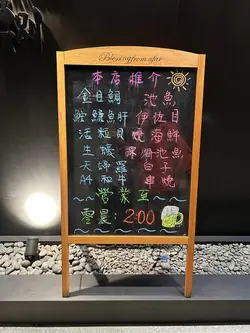 Blessing from afar
本店推介
金目鯛 池魚
鮟鱇魚肝 伊佐目
活粒貝 燒海鮮
生蠔 深海池魚
天婦羅 白子
A4 和牛 串燒
~~營業至~~
零晨：2:00